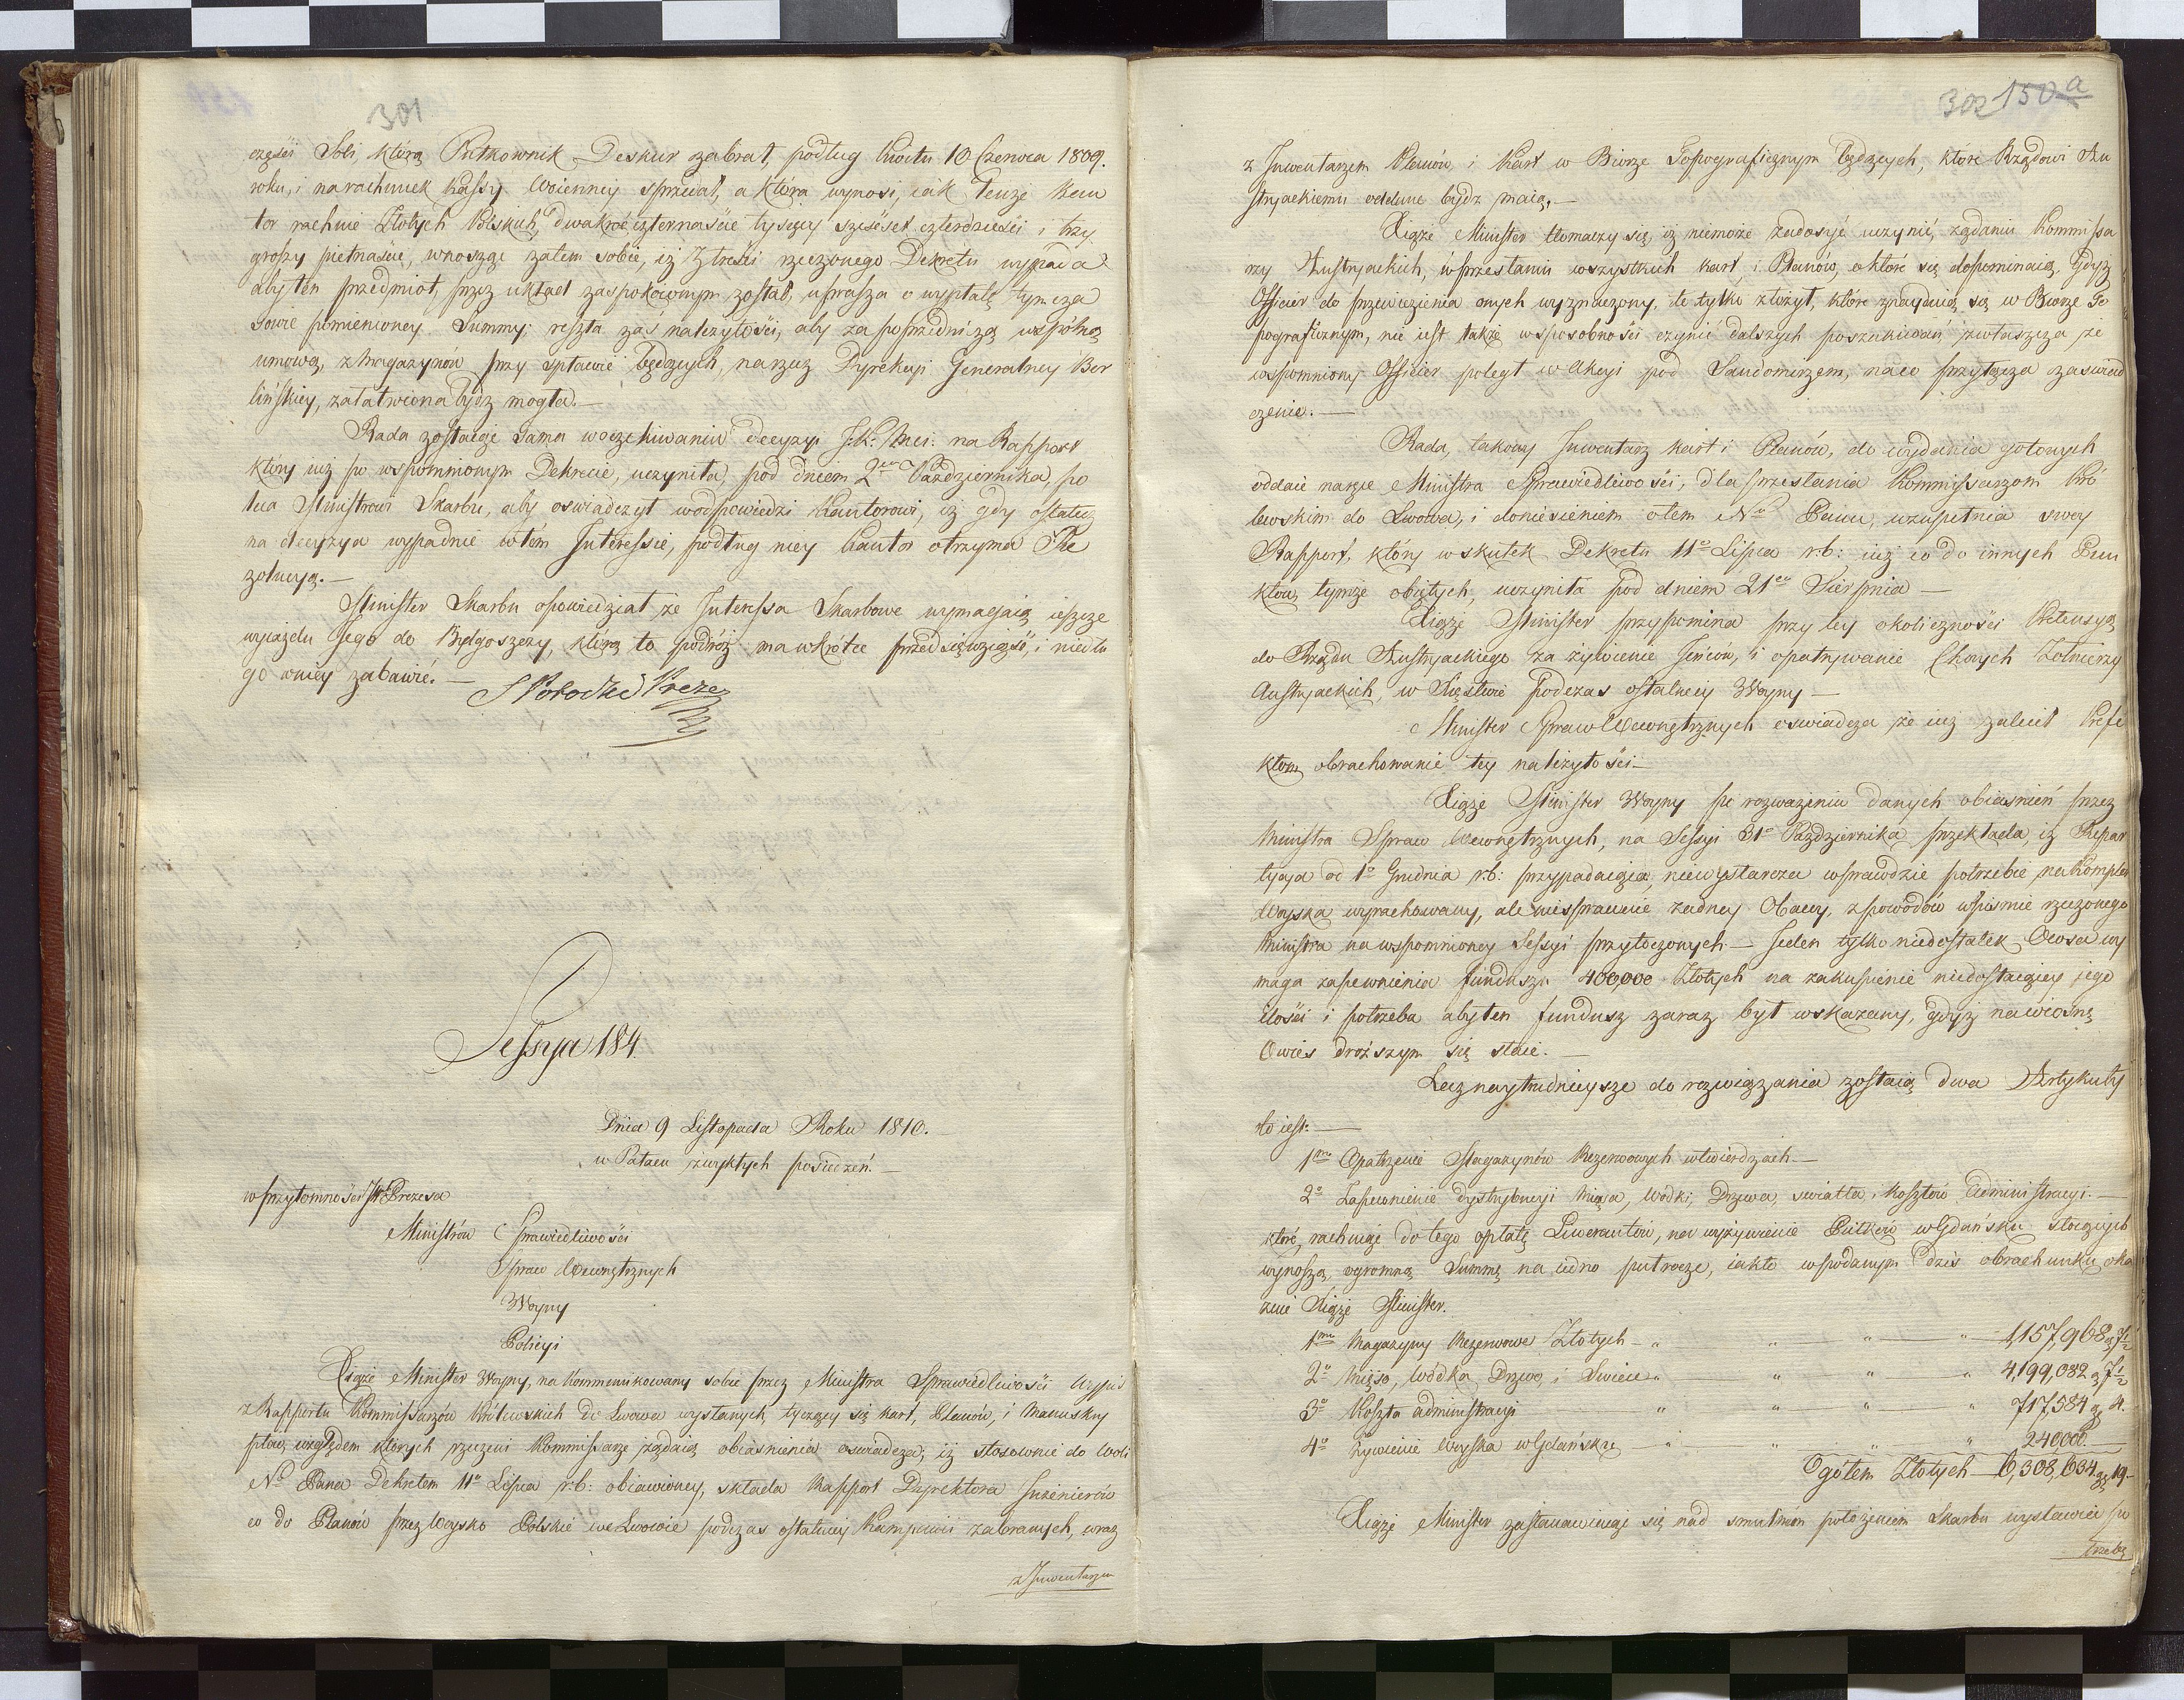 301
częśći Soli, którą Pułkownik Deskur zabrał, podług Kwitu 10 Czerwca 1809.
roku, i na rachunek Kassy Woienney sprzedał, a która wynosi, iak Tenże Kan
tor rachuie Złotych Polskich, dwakroć czternaśćie tysięcy sześćset czterdzieśći i trzy
groszy pietnaśćie, wnosząc zatem sobie, iż z treśći rzeczonego Dekretu wypada
aby ten przedmiot, przez układ zaspokoionym został, uprasza o wypłatę tymcza
sowie pomienioney Summy; reszta zaś należytośći, aby za poprzedniczą wspólną
umową, z Magazynów przy spławie będących, na rzecz Dyrekcyi Generalney Ber
lińskiey, załatwiona bydź mogła.—
Rada zostaiąc sama w oczekiwaniu decyzyi J: K: Mci: na Rapport
który iuż po wspomnionym Dekrecie, uczyniła, pod dniem 2go Października, po
leca Ministrowi Skarbu, aby oświadczył w odpowiedzi Kantorowi, iż gdy ostatecz
na decyzya wypadnie w tém Interessie, podług niey Kantor otrzyma Re
zolucyą.—
Minister Skarbu opowiedział, że Interessa Skarbowe wymagaią ieszcze
wyiazdu Jego do Bydgoszczy, którą to podróż ma wkrótce przedsięwziąść, i nie dłu
go w niey zabawić.—
S Potocki Prezes
Sessya 184.
Dnia 9 Listopada Roku 1810.
w Pałacu zwykłych posiedzeń.—
w przytomnośći JW Prezesa
Ministrów Sprawiedliwośći
Spraw Wewnętrznych
Woyny
Policyi
Xiąże Minister Woyny, na kommunikowany sobie przez Ministra Sprawiedliwośći Wypis
z Rapportu Kommissarzów Królewskich do Lwowa wysłanych, tyczący się kart, Planów, i Manuskry
ptów, względem których rzeczeni Kommissarze żądaią obiaśnienia oświadcza; iż stosownie do Woli
No Pana Dekretem 11o Lipca r:b: obiawioney, składa Rapport Dyrektora Inżenierów
co do Planów przez Woysko Polskie we Lwowie podczas ostatniey Kampanii zabranych, wraz
z Inwentarzem
302 150 a
z Inwentarzem Planów i Kart w Biorze Topograficznym będących, które Rządowi Au
stryackiemu oddane bydź maią.—
Xiąże Minister tłomaczy się, iż niemoże zadosyć uczynić, żądaniu Kommissa
rzy Austryackich, w przesłaniu wszystkich kart i Planów, o które się dopominaią. Gdyż
Officier do przewiezienia onych wyznaczony, te tylko złożył, które znayduią się w Biorze To
pograficznym, nie iest także w sposobnośći czynić dalszych poszukiwań, zwłaszcza że
wspomniony Officier poległ w Akcyi pod Sandomirzem, na co przyłącza zaświad
czenie.—
Rada, takowy Inwentarz kart i Planów, do wydania gotowych
oddaie na ręce Ministra Sprawiedliwośći, dla przesłania Kommissarzom Kró
lewskim do Lwowa, i doniesieniem o tem No Panu, uzupełnia swoy
Rapport, który w skutek Dekretu 11o Lipca r:b: iuż co do innych Pun
któw, tymże obiętych, uczyniła pod dniem 21o Sierpnia—
Xiąże Minister przypomina przy tey okolicznośći Pretensyą
do Rządu Austryackiego za żywienie Jeńców, i opatrywanie Chorych Żołnierzy
Austryackich, w Xięstwie podczas ostatniey Woyny—
Minister Spraw Wewnętrznych oświadcza że iuż zalecił Prefe
ktom obrachowanie tey należytośći—
Xiąże Minister Woyny po rozważeniu danych obiaśnień przez
Ministra Spraw Wewnętrznych, na Sessyi 31o Października przekłada, iż Repar
tycya od 1o Grudnia r:b: przypadaiąca, niewystarcza wprawdzie potrzebie, na komplet
Woyska wyrachowany, ale nie sprawuie żadney Obawy, z powodów w piśmie rzeczonego
Ministra na wspomnioney Sessyi przytoczonych.— Jeden tylko niedostatek Owsa wy
maga zapewnienia funduszu 400,000 Złotych na zakupienie niedostaiącey jego
ilośći i potrzeba aby ten fundusz zaraz był wskazany, gdyż na wiosnę
Owies droższym się staie.—
Lecz naytrudnieysze do rozwiązania zostaią dwa Artykuły
to iest:—
1mo Opatrzenie Magazynów Rezerwowych w twierdzach—
2o Zapewnienie dystrybucyi Mięsa, Wódki, Drzewa, światła, i kosztów Administracyi.—
które, rachuiąc do tego opłatę Liwerantów, na wyżywienie Pułków w Gdańsku stoiących
wynoszą, ogromną Summę na iedno półrocze, iak to w podanym dziś obrachunku oka
zuie Xiąże Minister.
1mo Magazyny Rezerwowe Złotych — „ „ „ „ 1,157,968 g 7½
2o Mięso, Wódka, Drzewo, i Swiece „ „ „ „ 4,199,082 g 7½
3o Koszta administracyi „ „ „ „ 717,584 g 4.
4o Żywienie Woyska w Gdańsku — „ „ „ „ 24000.—
Ogółem Złotych — 6,308,634 g 19—
Xiąże Minister zastanawiaiąc się nad smutném położeniem Skarbu wystawia po
trzebę